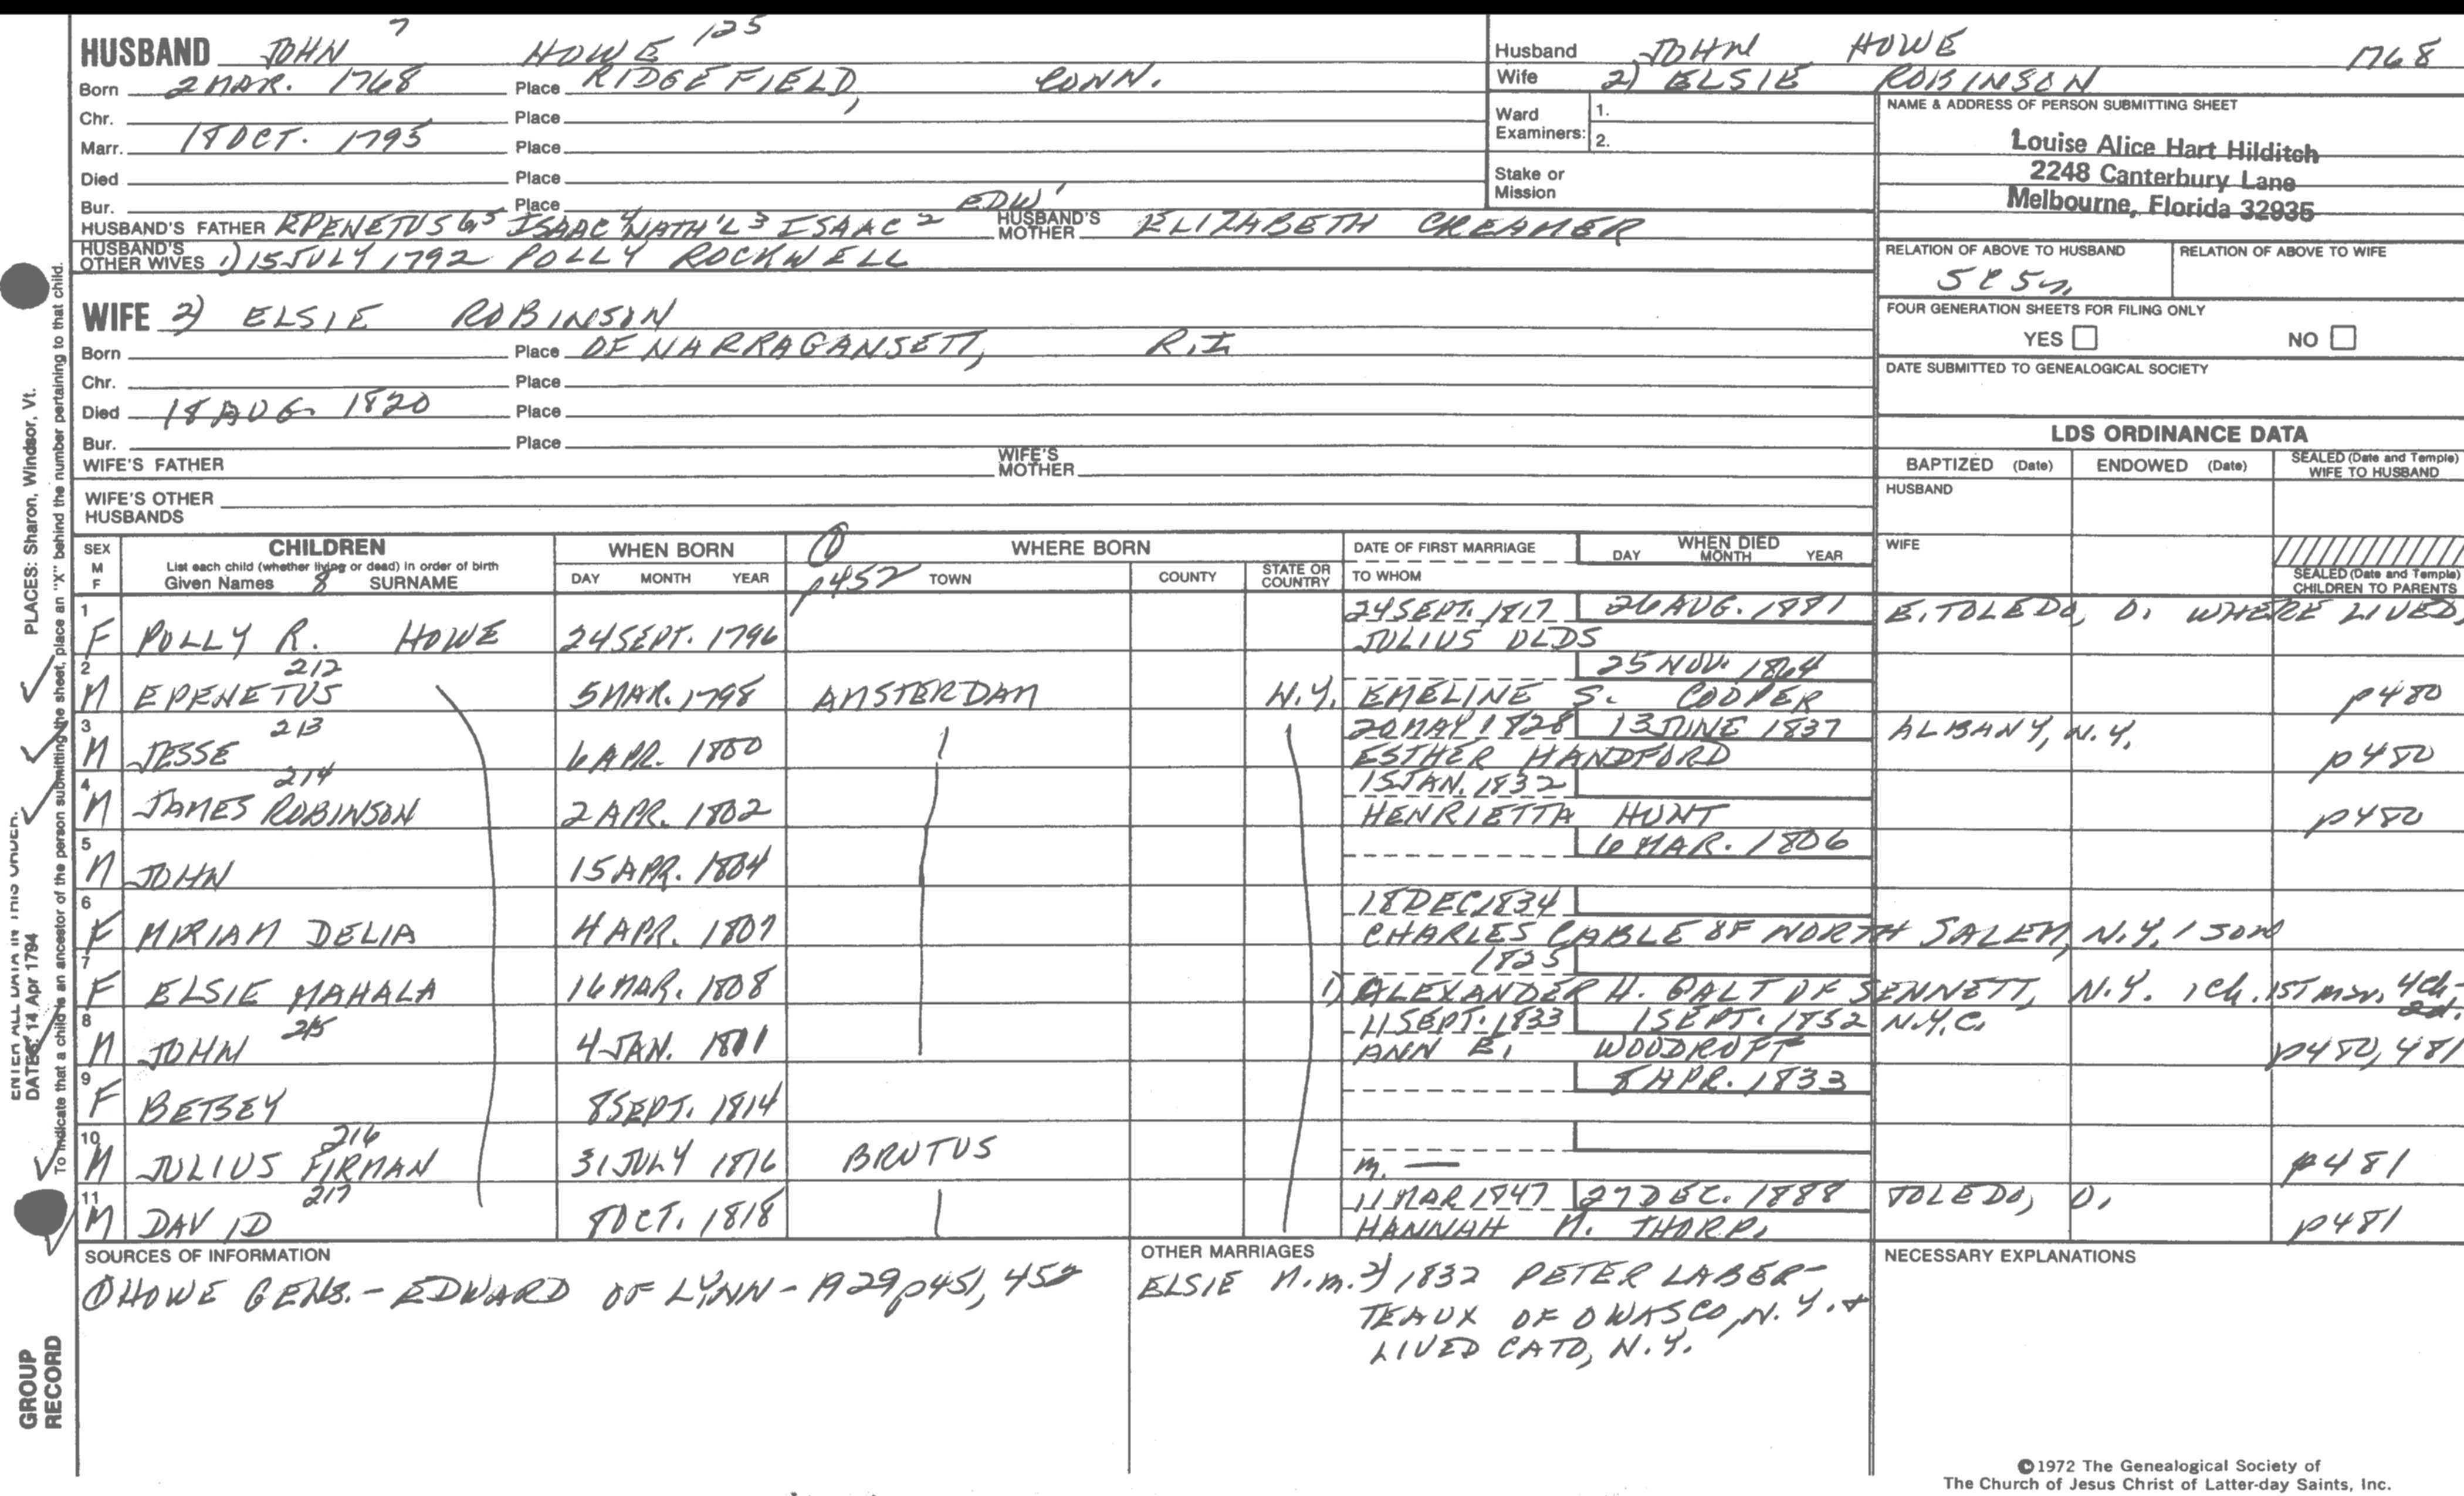 HUSBAND JOHN 7 HOWE 125
Born 2 MAR. 1768 Place RIDGEFIELD, CONN.
Chr. Place
Marr. 18 OCT. 1795 Place
Died Place
Bur. Place
HUSBAND'S FATHER EPENETUS 6 5 ISAAC 4 NATH'L 3 ISAAC 2 EDW 1 HUSBAND'S MOTHER ELIZABETH CREAMER
HUSBAND'S OTHER WIVES 1) 15 JULY 1792 POLLY ROCKWELL
WIFE 2) ELSIE ROBINSON
Born Place OF NARRAGANSETT, R.I.
Chr. Place
Died 18 AUG. 1820 Place
Bur. Place
WIFE'S FATHER WIFE'S MOTHER
WIFE'S OTHER HUSBANDS
Husband JOHN HOWE 1768
Wife 2) ELSIE ROBINSON
Ward Examiners: 1.
2.
Stake or Mission
NAME & ADDRESS OF PERSON SUBMITTING SHEET
Louise Alice Hart Hilditch
2248 Canterbury Lane
Melbourne, Florida 32935
RELATION OF ABOVE TO HUSBAND RELATION OF ABOVE TO WIFE
FOUR GENERATION SHEETS FOR FILING ONLY
YES NO
DATE SUBMITTED TO GENEALOGICAL SOCIETY
LDS ORDINANCE DATA
BAPTIZED (Date) ENDOWED (Date) SEALED (Date and Temple) WIFE TO HUSBAND
HUSBAND
WIFE
SEALED (Date and Temple) CHILDREN TO PARENTS
SEX M F
CHILDREN
List each child (whether living or dead) in order of birth
Given Names 8 SURNAME
WHEN BORN
DAY MONTH YEAR
① p452
WHERE BORN
TOWN COUNTY STATE OR COUNTRY
DATE OF FIRST MARRIAGE
TO WHOM
WHEN DIED
DAY MONTH YEAR
1 24 SEPT. 1817 26 AUG. 1881 E. TOLEDO, O. WHERE LIVED,
F POLLY R. HOWE 24 SEPT. 1796 JULIUS OLDS
2 212 25 NOV. 1864
M EPENETUS 5 MAR. 1798 AMSTERDAM N.Y. EMELINE S. COOPER p480
3 213 20 MAY 1828 13 JUNE 1837 ALBANY, N.Y.
M JESSE 6 APR. 1800 ESTHER HANDFORD p480
4 214 15 JAN. 1832
M JAMES ROBINSON 2 APR. 1802 HENRIETTA HUNT p480
5 6 MAR. 1806
M JOHN 15 APR. 1804
6 18 DEC 1834
F MIRIAM DELIA 4 APR. 1807 CHARLES CABLE OF NORTH SALEM, N.Y. 1 SON
7 1825
F ELSIE MAHALA 16 MAR. 1808 1) ALEXANDER H. GALT OF SENNETT, N.Y. 1 ch. 1ST mar, 4 ch - 2d.
8 215 11 SEPT. 1833 1 SEPT. 1852 N.Y.C.
M JOHN 4 JAN. 1811 ANN E. WOODRUFF p480, 481
9 8 APR. 1833
F BETSEY 8 SEPT. 1814
10 216
M JULIUS FIRMAN 31 JULY 1816 BRUTUS m. — p481
11 217 11 MAR 1847 27 DEC. 1888 TOLEDO, O.
M DAVID 8 OCT. 1818 HANNAH M. THORP. p481
SOURCES OF INFORMATION
① HOWE GENS. - EDWARD OF LYNN - 1929 p451, 452
OTHER MARRIAGES
ELSIE M. m. 2) 1832 PETER LABER-
TEAUX OF OWASCO, N.Y. +
LIVED CATO, N.Y.
NECESSARY EXPLANATIONS
©1972 The Genealogical Society of
The Church of Jesus Christ of Latter-day Saints, Inc.
PLACES: Sharon, Windsor, Vt.
To indicate that a child is an ancestor of the person submitting the sheet, place an "X" behind the number pertaining to that child.
ENTER ALL DATA IN THIS ORDER:
DATES: 14 Apr 1794
GROUP
RECORD